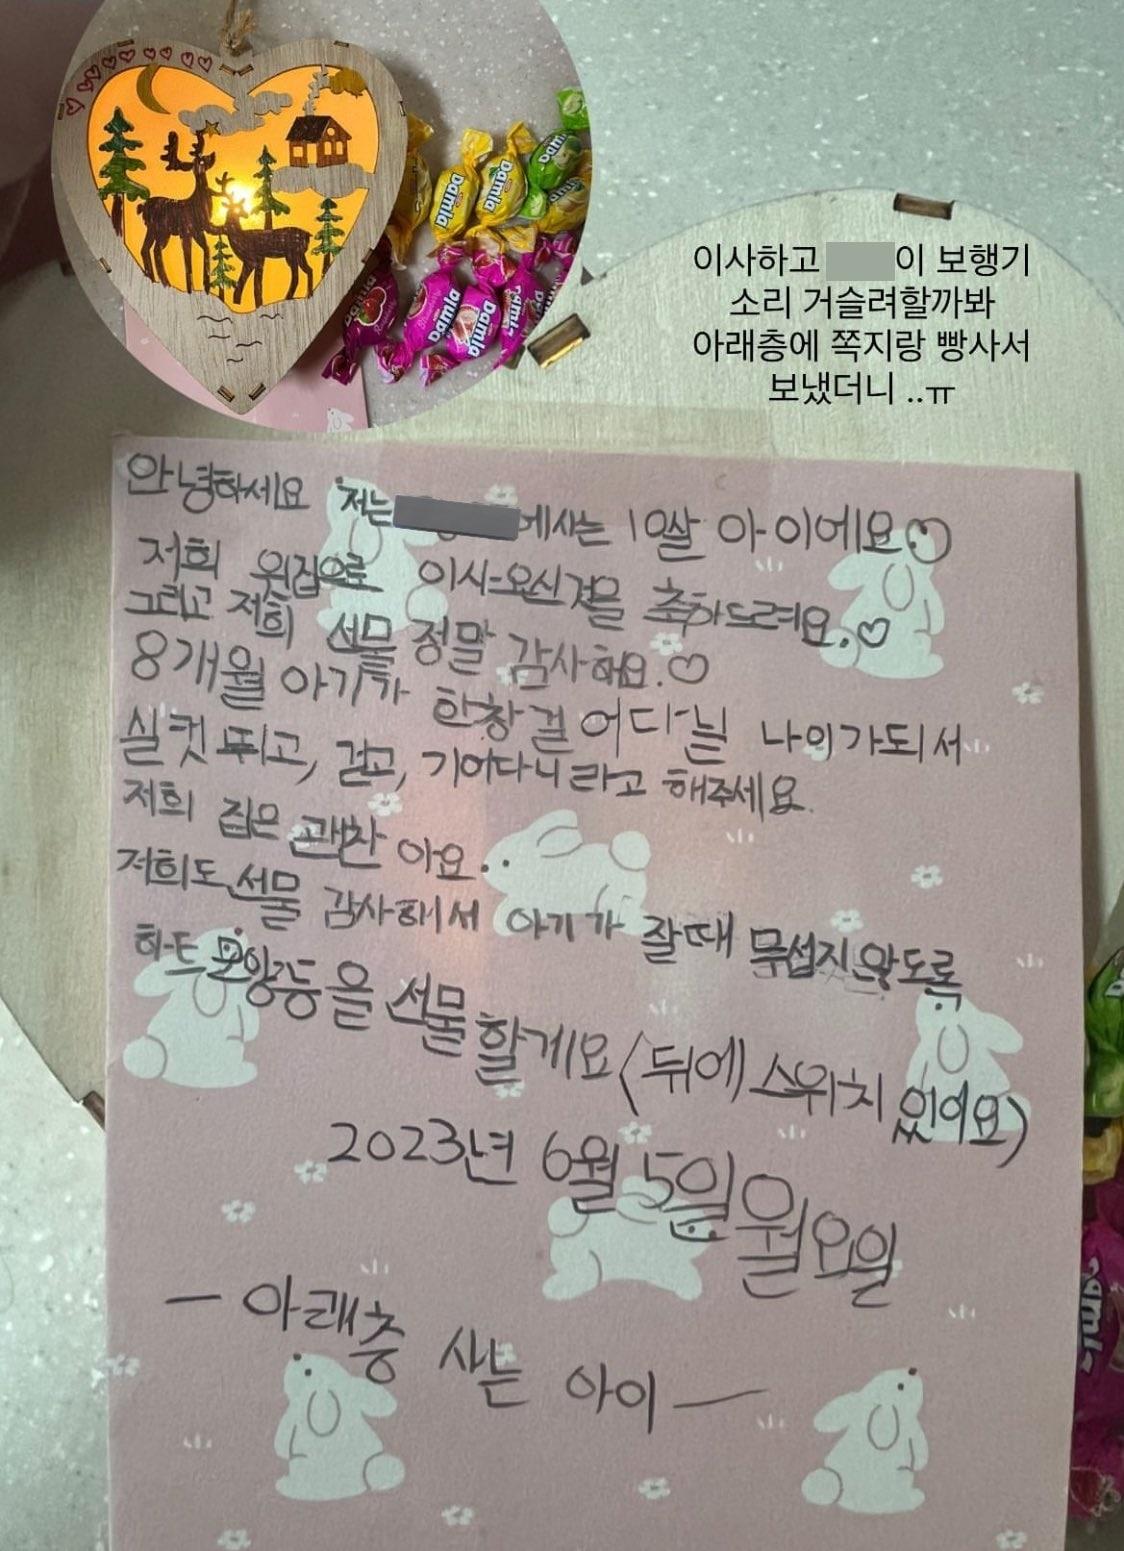 Damla
Damla
Damla
Damla
Damla
이사하고 이 보행기
소리 거슬려할까봐
아래층에 쪽지랑 빵사서
보냈더니 ..ㅠ
안녕하세요 저는 에사는 10살 아이에요♡
저희 윗집으로 이사오신걸을 축하드려요.♡
그리고 저희 선물 정말 감사해요.♡
8개월 아기가 한창 걸어다닐 나이가되서
실컷 뛰고, 걷고, 기어다니라고 해주세요.
저희 집은 괜찬아요.
저희도 선물 감사해서 아기가 잘때 무섭지않도록
하트모양등을 선물할게요(뒤에 스위치 있어요)
2023년 6월 5일 월요일
— 아래층 사는 아이 —